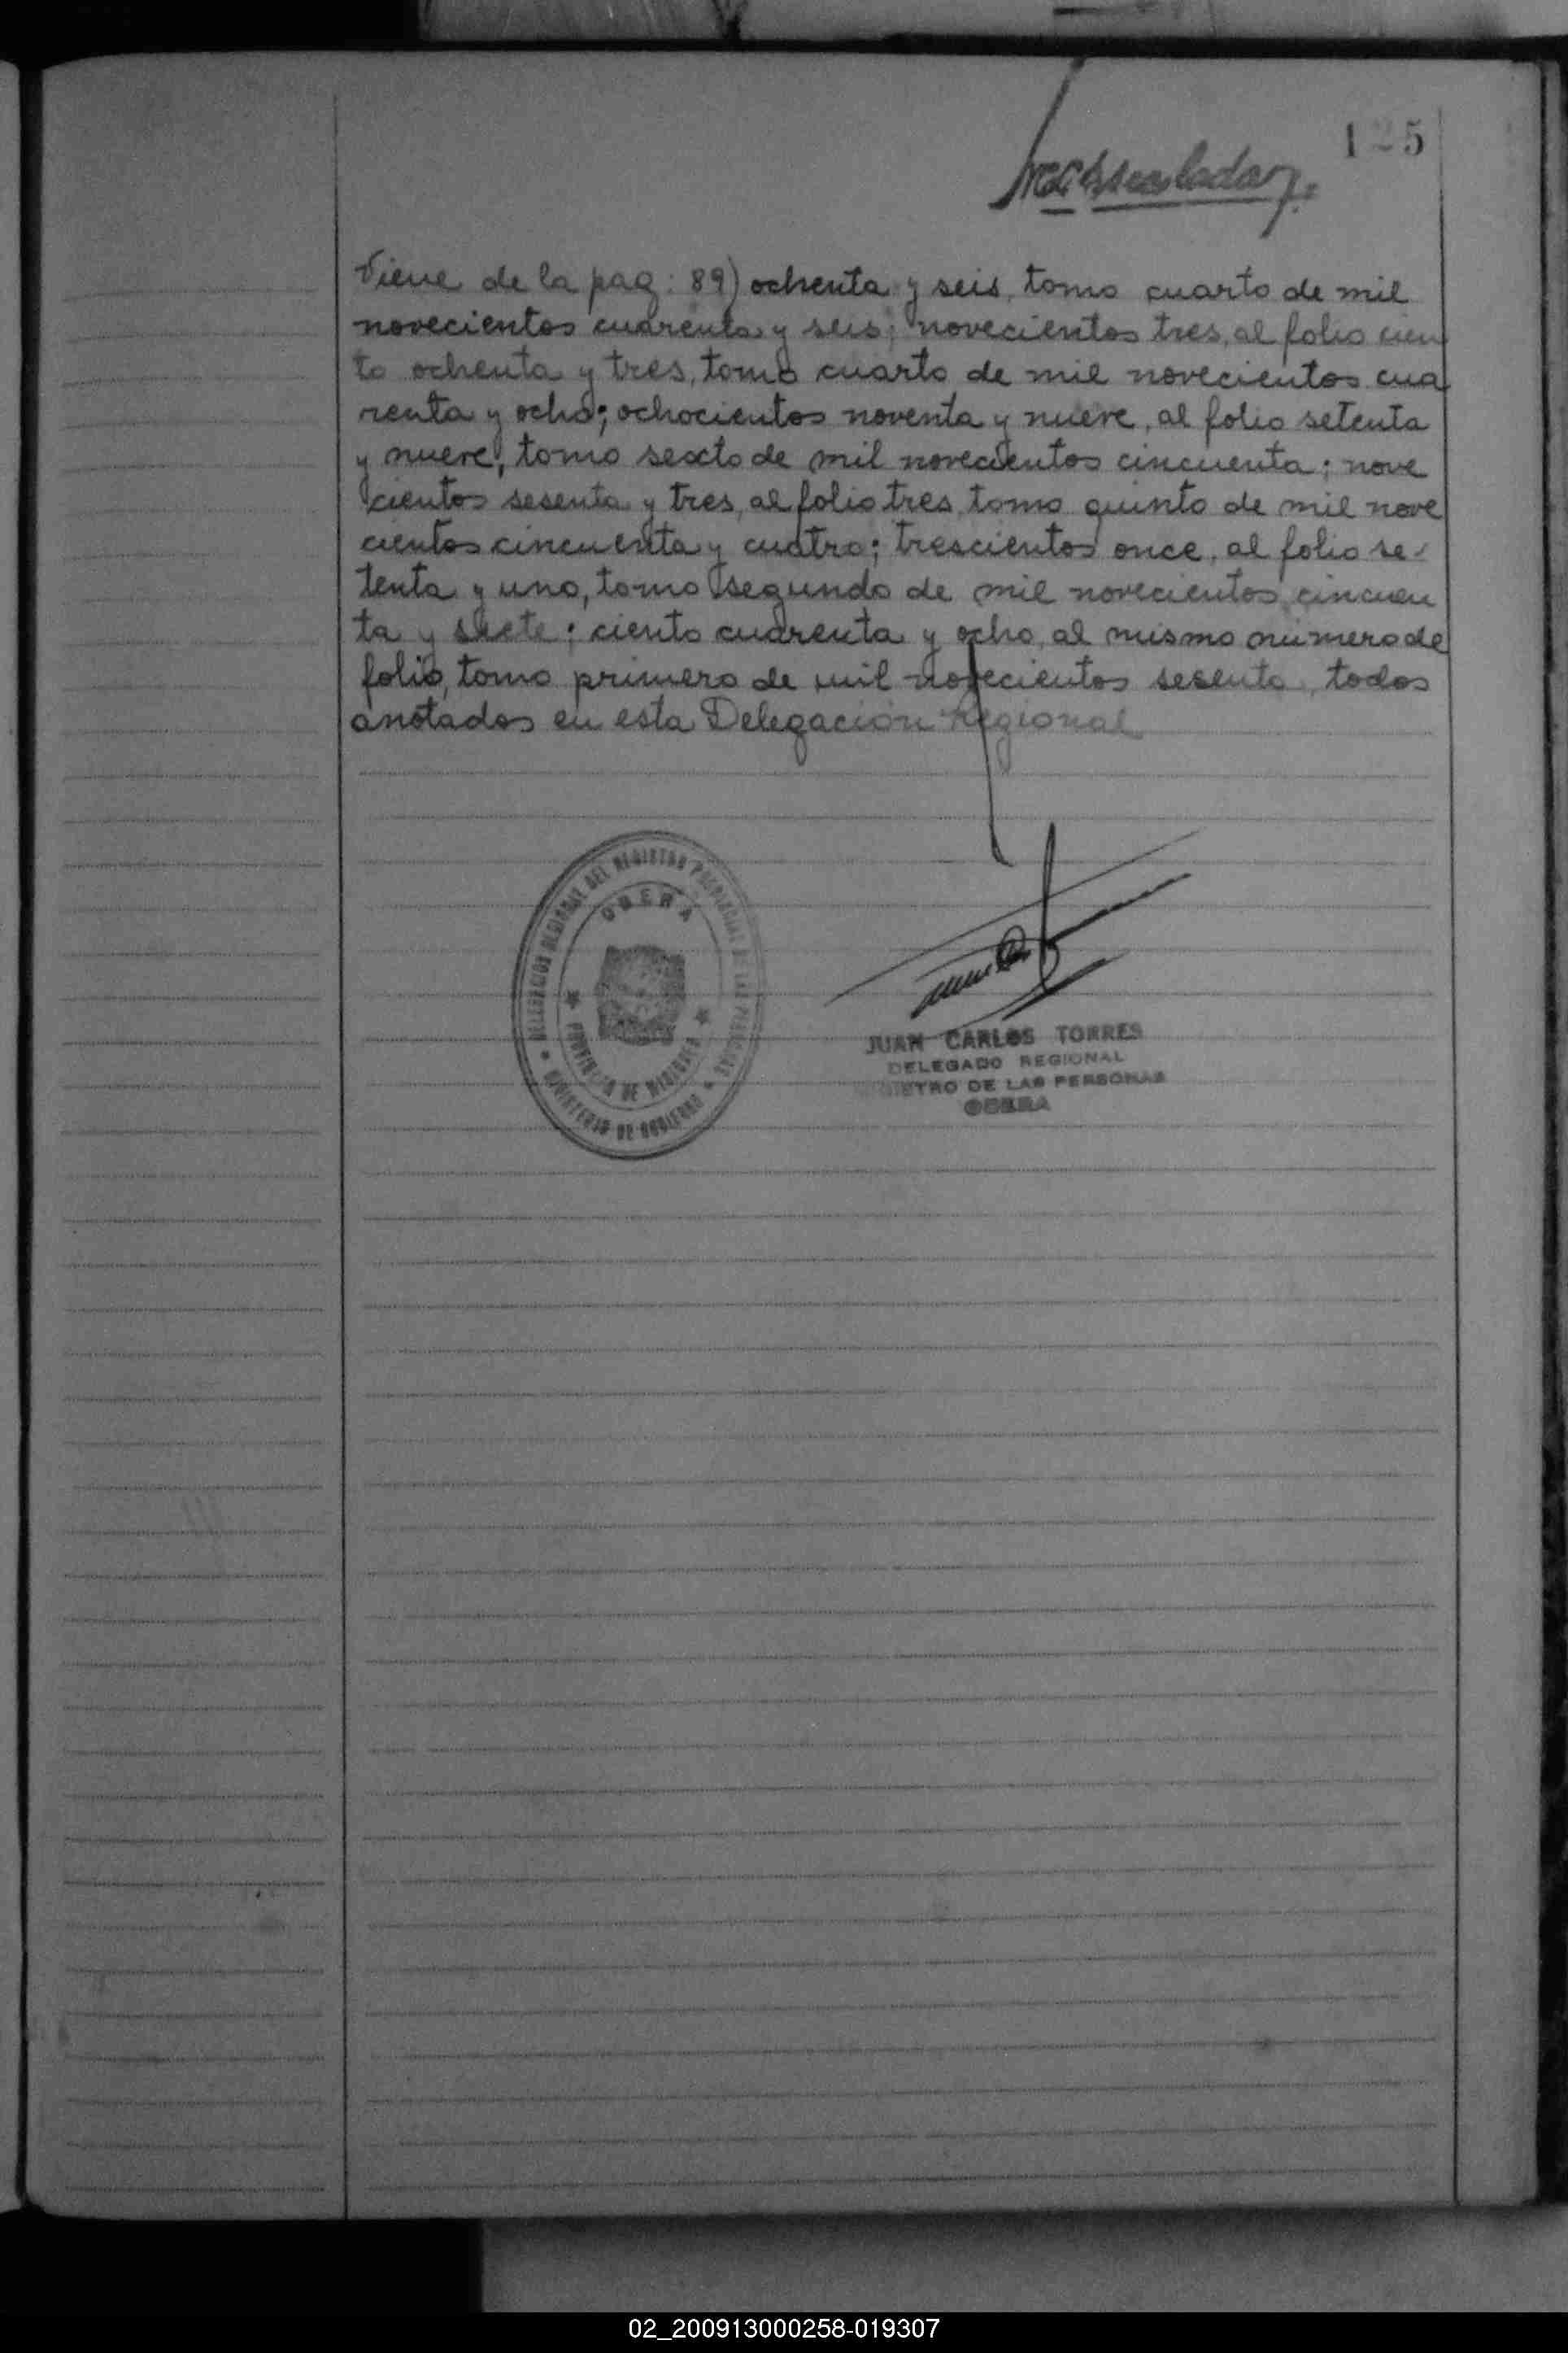 125
Viene de la pag: 89) ochenta y seis, tomo cuarto de mil
novecientos cuarenta y seis; novecientos tres, al folio cien
to ochenta y tres, tomo cuarto de mil novecientos cua
renta y ocho; ochocientos noventa y nueve, al folio setenta
y nueve, tomo sexto de mil novecientos cincuenta; nove
cientos sesenta y tres, al folio tres, tomo quinto de mil nove
cientos cincuenta y cuatro; trescientos once, al folio se-
tenta y uno, tomo segundo de mil novecientos cincuen
ta y siete; ciento cuarenta y ocho, al mismo número de
folio, tomo primero de mil novecientos sesenta, todos
anotados en esta Delegación Regional
DELEGACION REGIONAL DEL REGISTRO PROVINCIAL DE LAS PERSONAS
OBERA
PROVINCIA DE MISIONES
MINISTERIO DE GOBIERNO
JUAN CARLOS TORRES
DELEGADO REGIONAL
REGISTRO DE LAS PERSONAS
OBERA
02_200913000258-019307